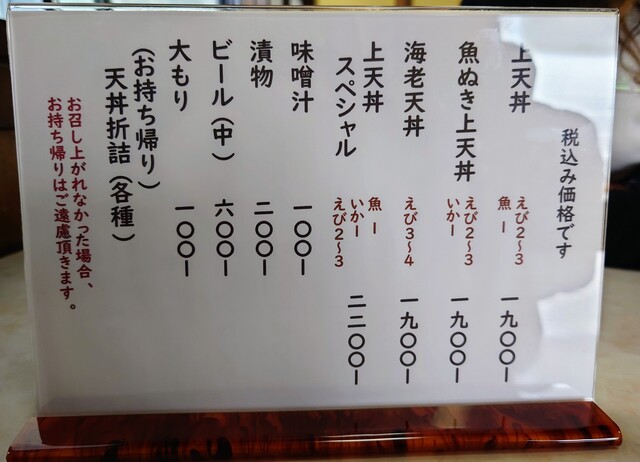 税込み価格です
上天丼 えび2〜3 魚ー 一九〇〇ー
魚ぬき上天丼 えび2〜3 いかー 一九〇〇ー
海老天丼 えび3〜4 一九〇〇ー
上天丼 魚ー
スペシャル いかー えび2〜3 二二〇〇ー
味噌汁 一〇〇ー
漬物 二〇〇ー
ビール(中) 六〇〇ー
大もり 一〇〇ー
(お持ち帰り)
天丼折詰(各種)
お召し上がれなかった場合、
お持ち帰りはご遠慮頂きます。